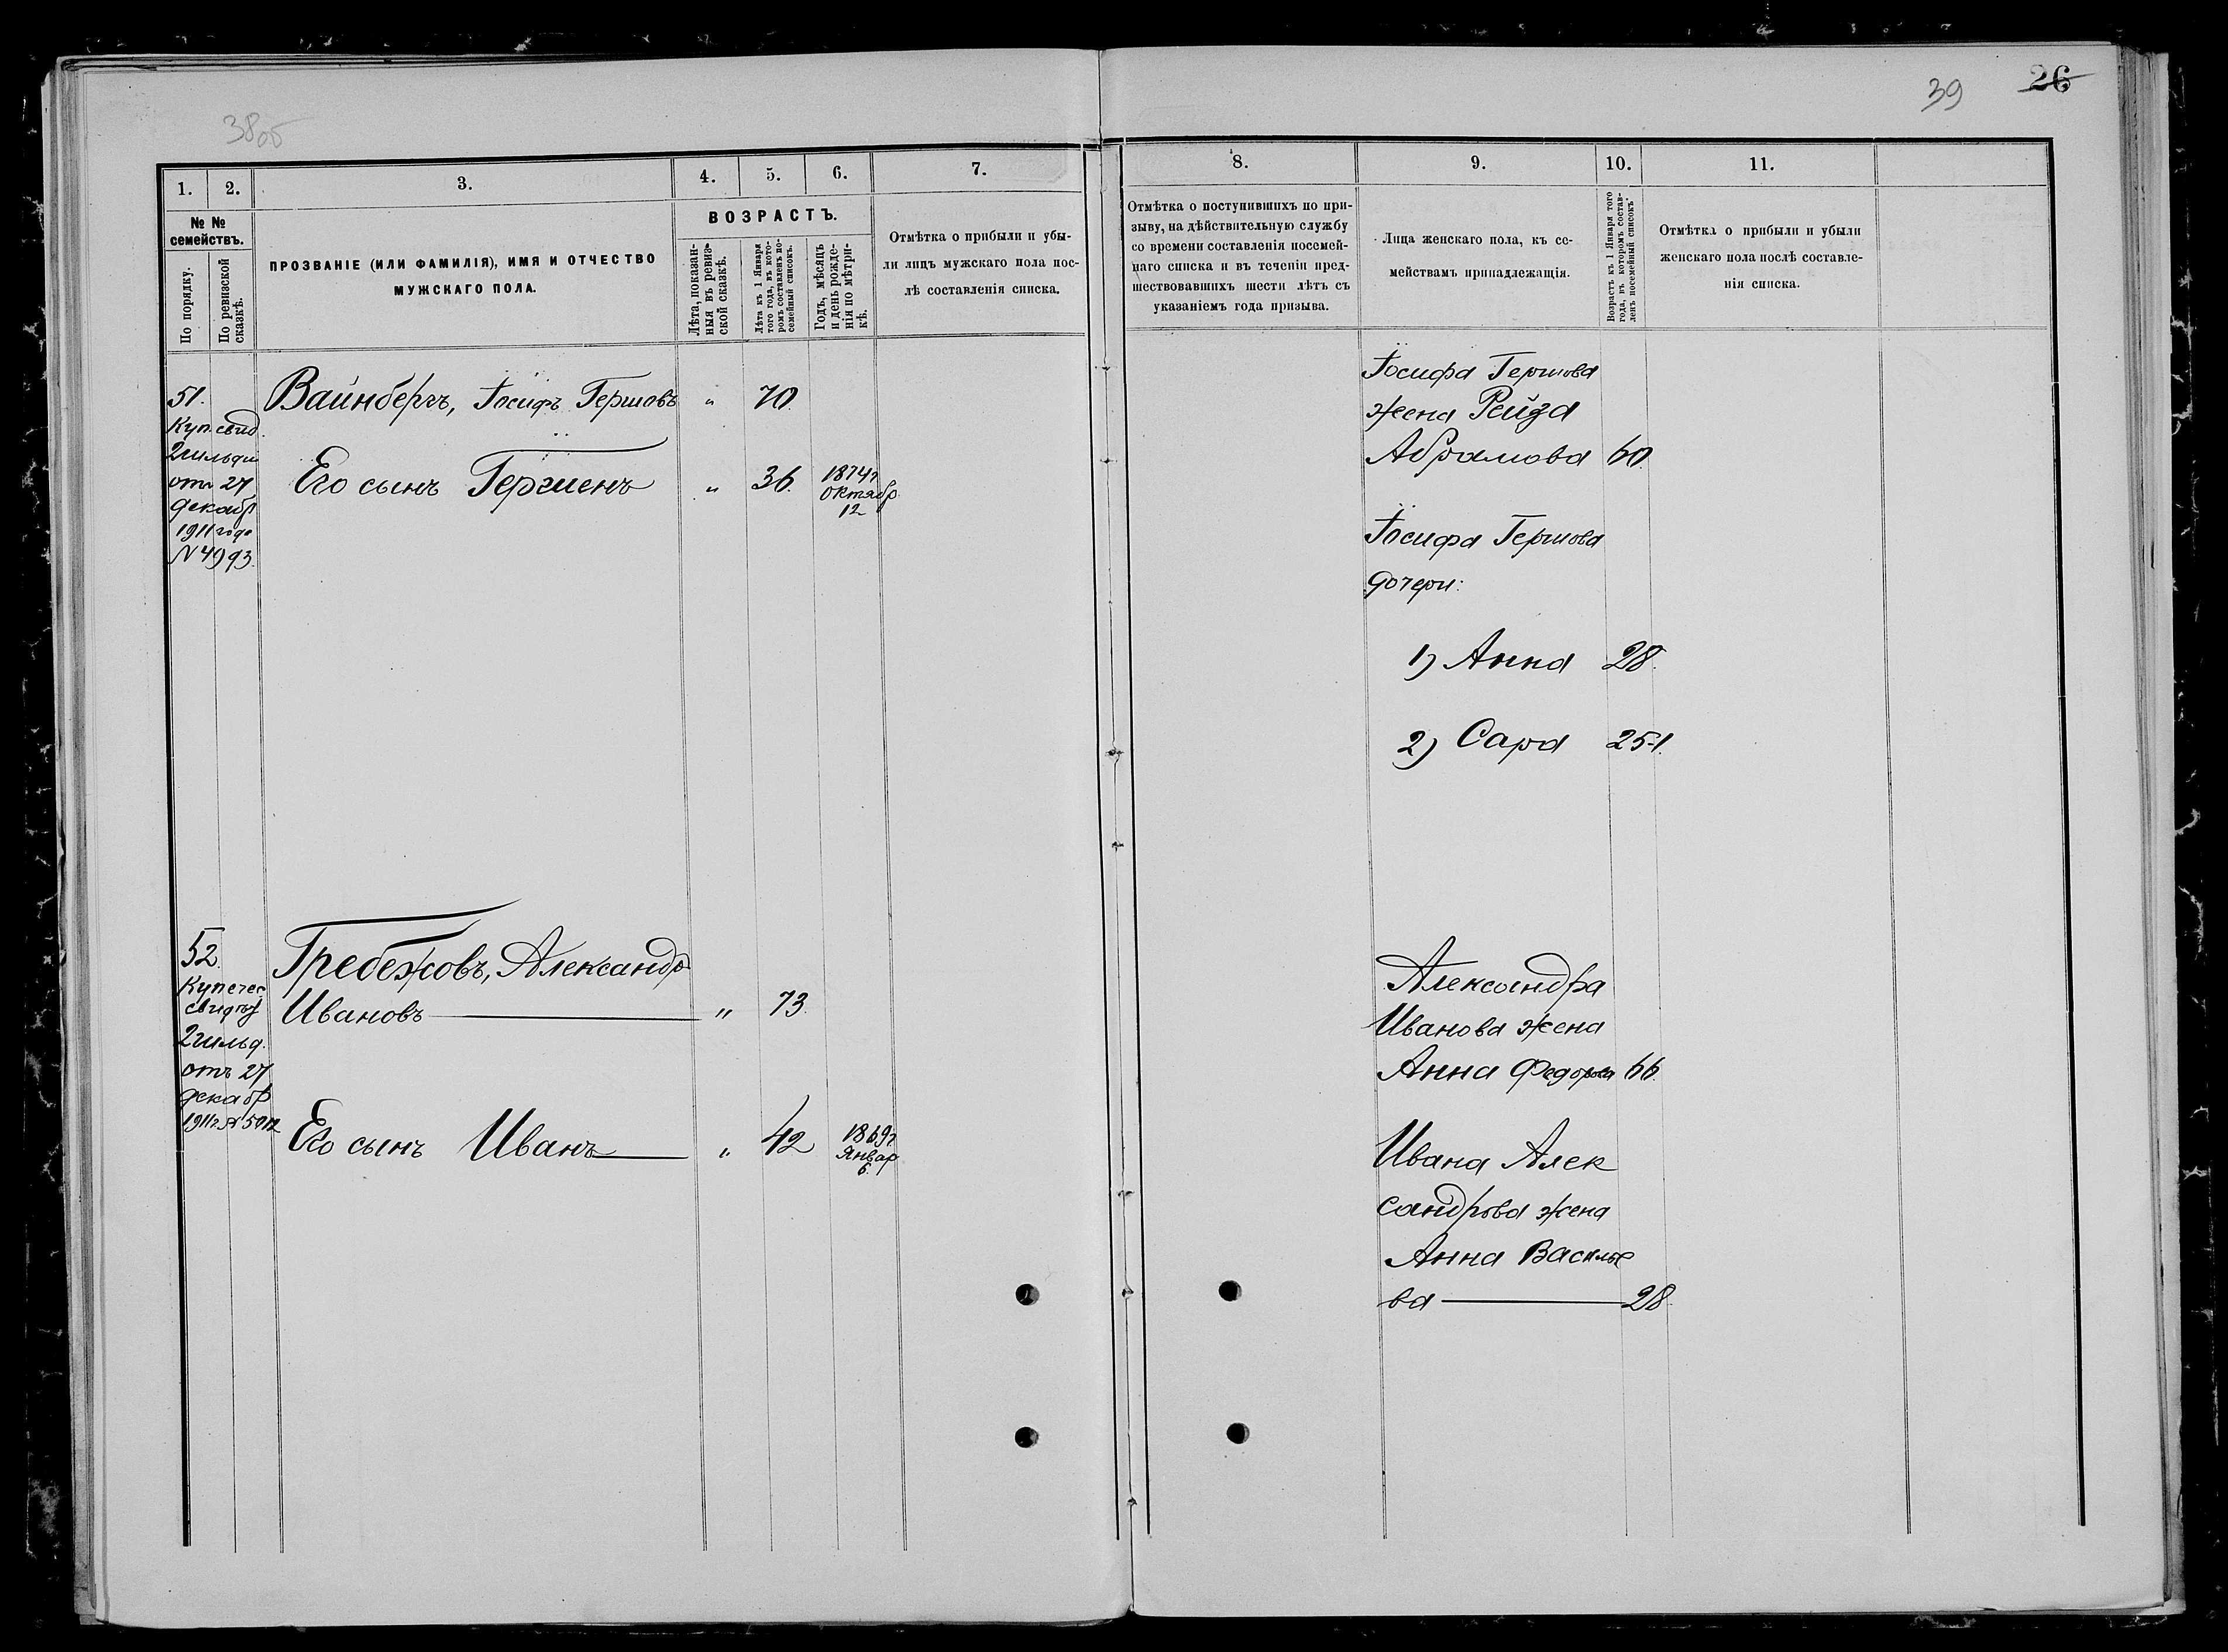 38об
39 26
1.
2.
3.
4.
5.
6.
7.
№ №
семействъ.
По порядку.
По ревизской
сказкѣ.
ПРОЗВАНІЕ (ИЛИ ФАМИЛІЯ), ИМЯ И ОТЧЕСТВО
МУЖСКАГО ПОЛА.
ВОЗРАСТЪ.
Лѣта, показан-
ныя въ ревиз-
ской сказкѣ.
Лѣта къ 1 Января
того года, въ кото-
ромъ составленъ по-
семейный списокъ.
Годъ, мѣсяцъ
и день рожде-
нія по мѣтри-
кѣ.
Отмѣтка о прибыли и убы-
ли лицъ мужскаго пола пос-
лѣ составленія списка.
51.
Куп. свид.
2 гильдии
отъ 27
декабр
1911 года
N 4993.
Вайнбергъ, Іосифъ Гершовъ " 70.
Его сынъ Гершенъ " 36. 1874 г
октябр.
12
52.
Купечес
свидѣт
2 гильд.
отъ 27
декабр
1911 г. N 5012
Гребежовъ, Александр
Ивановъ " 73.
Его сынъ Иванъ " 42 1869 г
Январ
6.
8.
9.
10.
11.
Отмѣтка о поступившихъ по при-
зыву, на дѣйствительную службу
со времени составленія посемей-
наго списка и въ теченіи пред-
шествовавшихъ шести лѣтъ съ
указаніемъ года призыва.
Лица женскаго пола, къ се-
мействамъ принадлежащія.
Возрастъ къ 1 Января того
года, въ которомъ состав-
ленъ посемейный списокъ.
Отмѣтка о прибыли и убыли
женскаго пола послѣ составле-
нія списка.
Іосифа Гершова
жена Рейза
Абрамова 60.
Іосифа Гершова
дочери:
1) Анна 28.
2) Сара 25
Александра
Иванова жена
Анна Федорова 66.
Ивана Алек
сандрова жена
Анна Василье
ва 28.